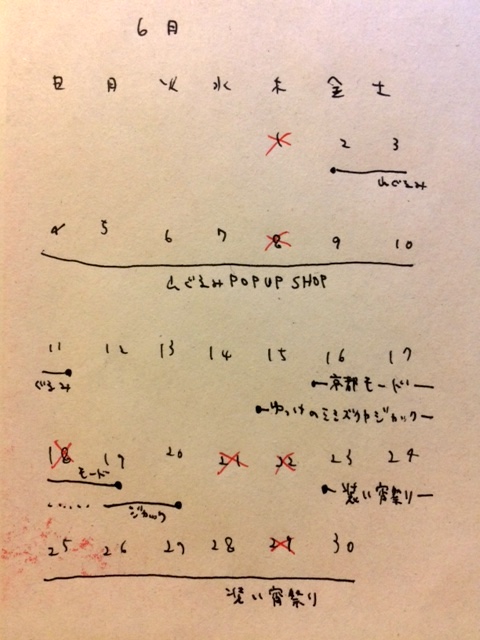 6月
日 月 火 水 木 金 土
1 2 3
ぐるみ
4 5 6 7 8 9 10
ぐるみ POPUP SHOP
11 12 13 14 15 16 17
ぐるみ 京都モード
ゆっけのミミズクヤジャック
18 19 20 21 22 23 24
モード 装い宵祭り
ジャック
25 26 27 28 29 30
装い宵祭り